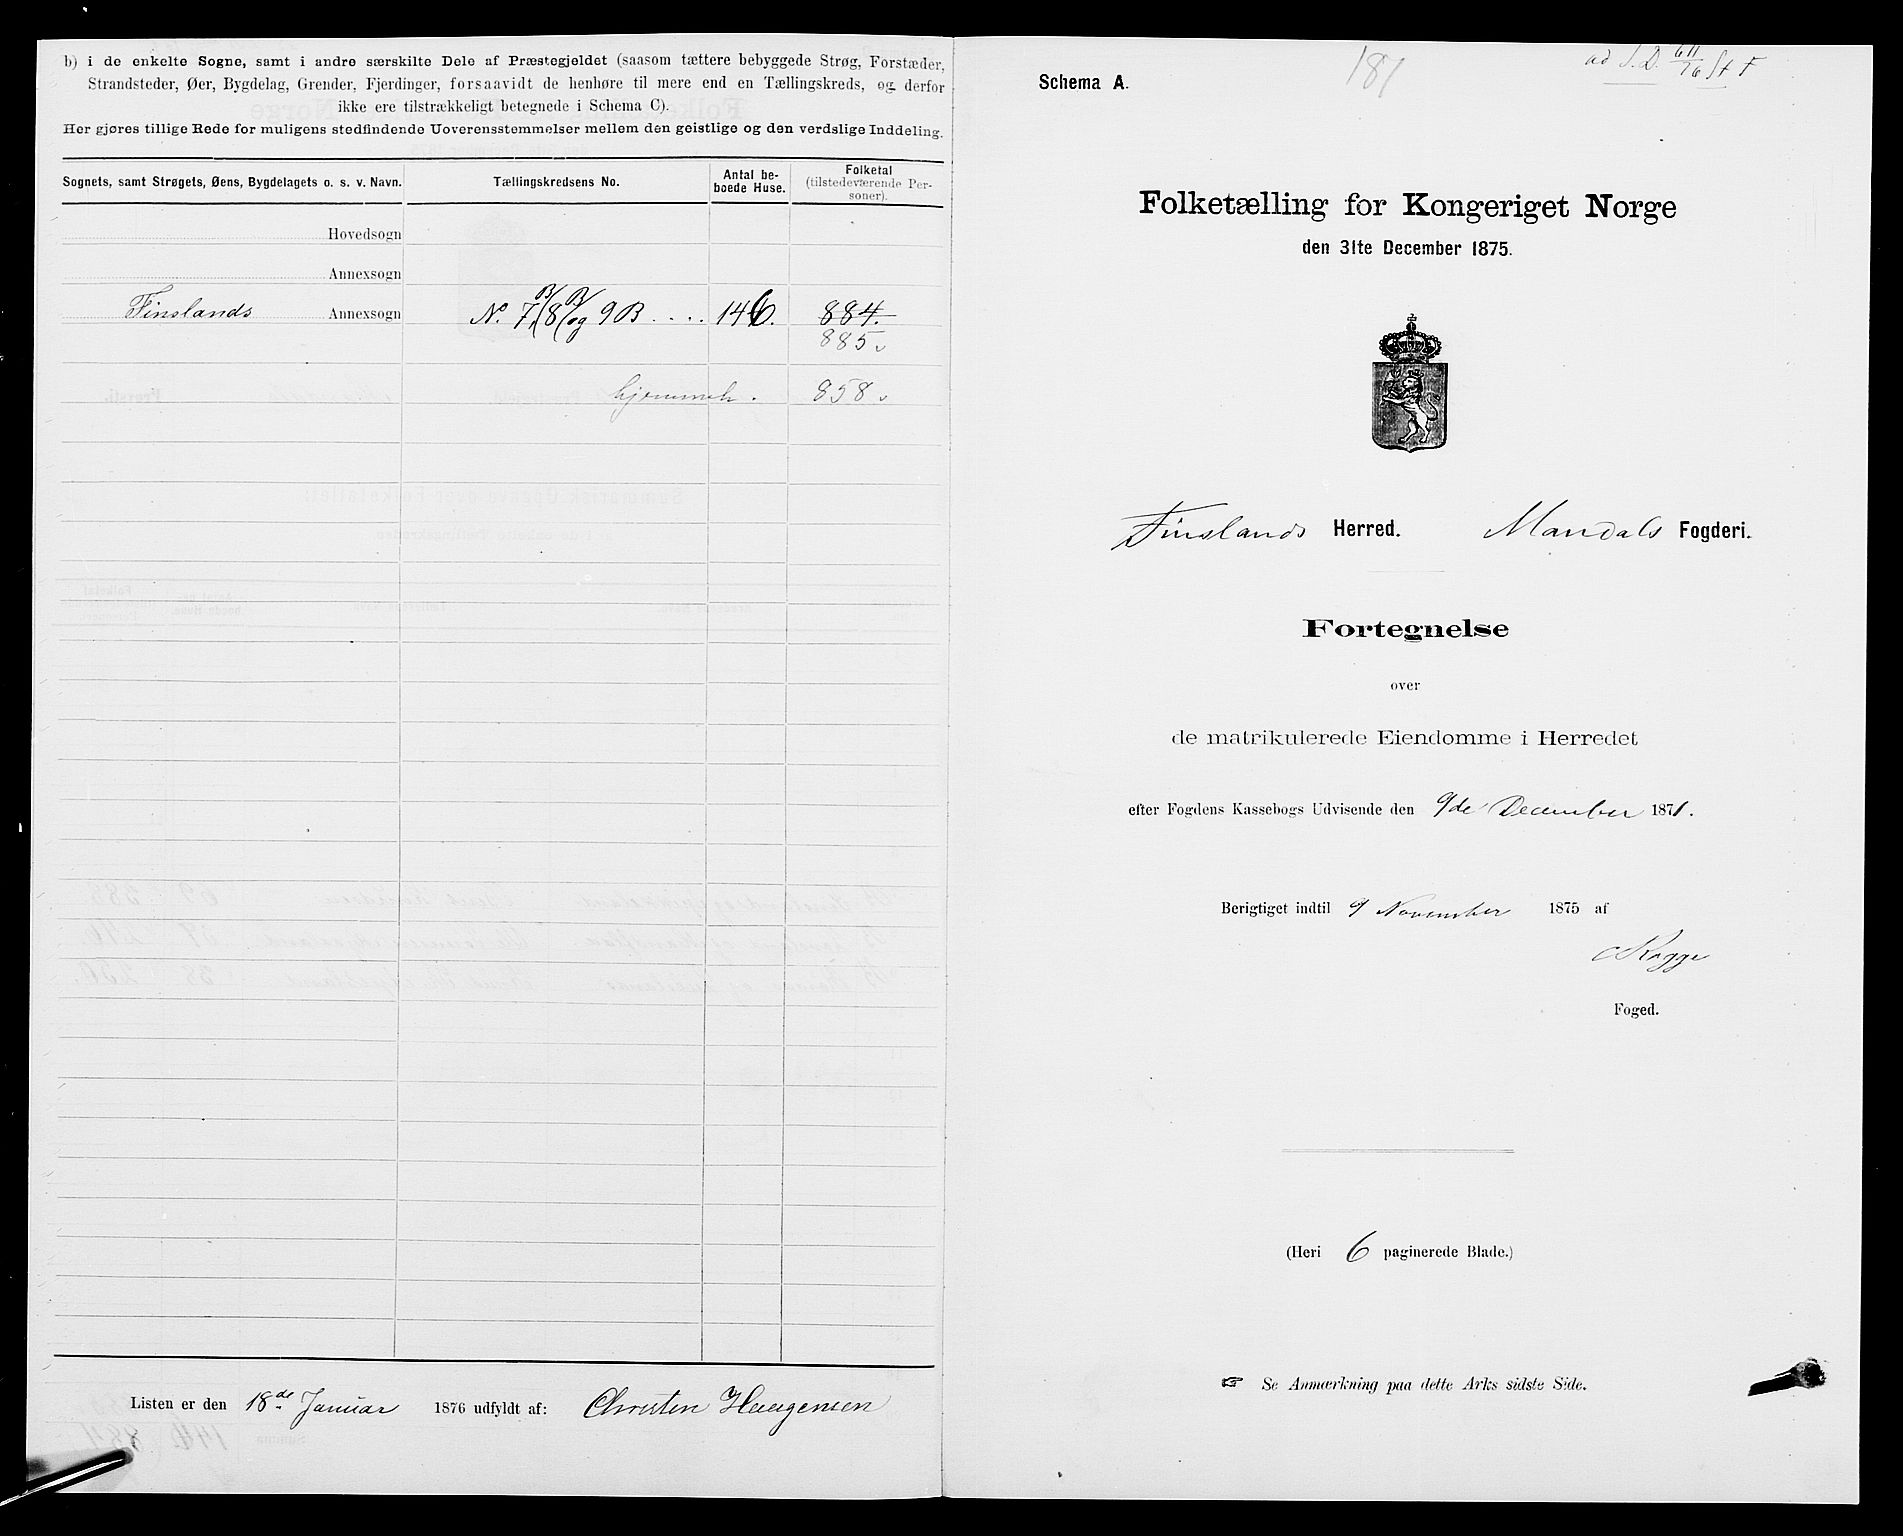 b) i de enkelte Sogne, samt i andre særskilte Dele af Præstegjeldet (saasom tættere bebyggede Strøg, Forstæder,
Strandsteder, Øer, Bygdelag, Grender, Fjerdinger, forsaavidt de henhøre til mere end en Tællingskreds, og derfor
ikke ere tilstrækkeligt betegnede i Schema C).
Her gjøres tillige Rede for muligens stedfindende Uoverensstemmelser mellem den geistlige og den verdslige Inddeling.
Sognets, samt Strøgets, Øens, Bygdelagets o. s. v. Navn. Tællingskredsens No. Antal be-
boede Huse. Folketal
(tilstedeværende Per-
soner).
Hovedsogn
Annexsogn
Finslands Annexsogn N. 7 B/ 8 B/ og 9 B .... 146. 884.
885
hjemmeh. 858
Listen er den 18de Januar 1876 udfyldt af: Christen Haagensen
181
ad S.D. 611/76 St F
Schema A.
Folketælling for Kongeriget Norge
den 31te December 1875.
Finslands Herred. Mandals Fogderi.
Fortegnelse
over
de matrikulerede Eiendomme i Herredet
efter Fogdens Kassebogs Udvisende den 9de December 1871.
Berigtiget indtil 9 November 1875 af
Rogge
Foged.
(Heri 6 paginerede Blade.)
☞ Se Anmærkning paa dette Arks sidste Side.